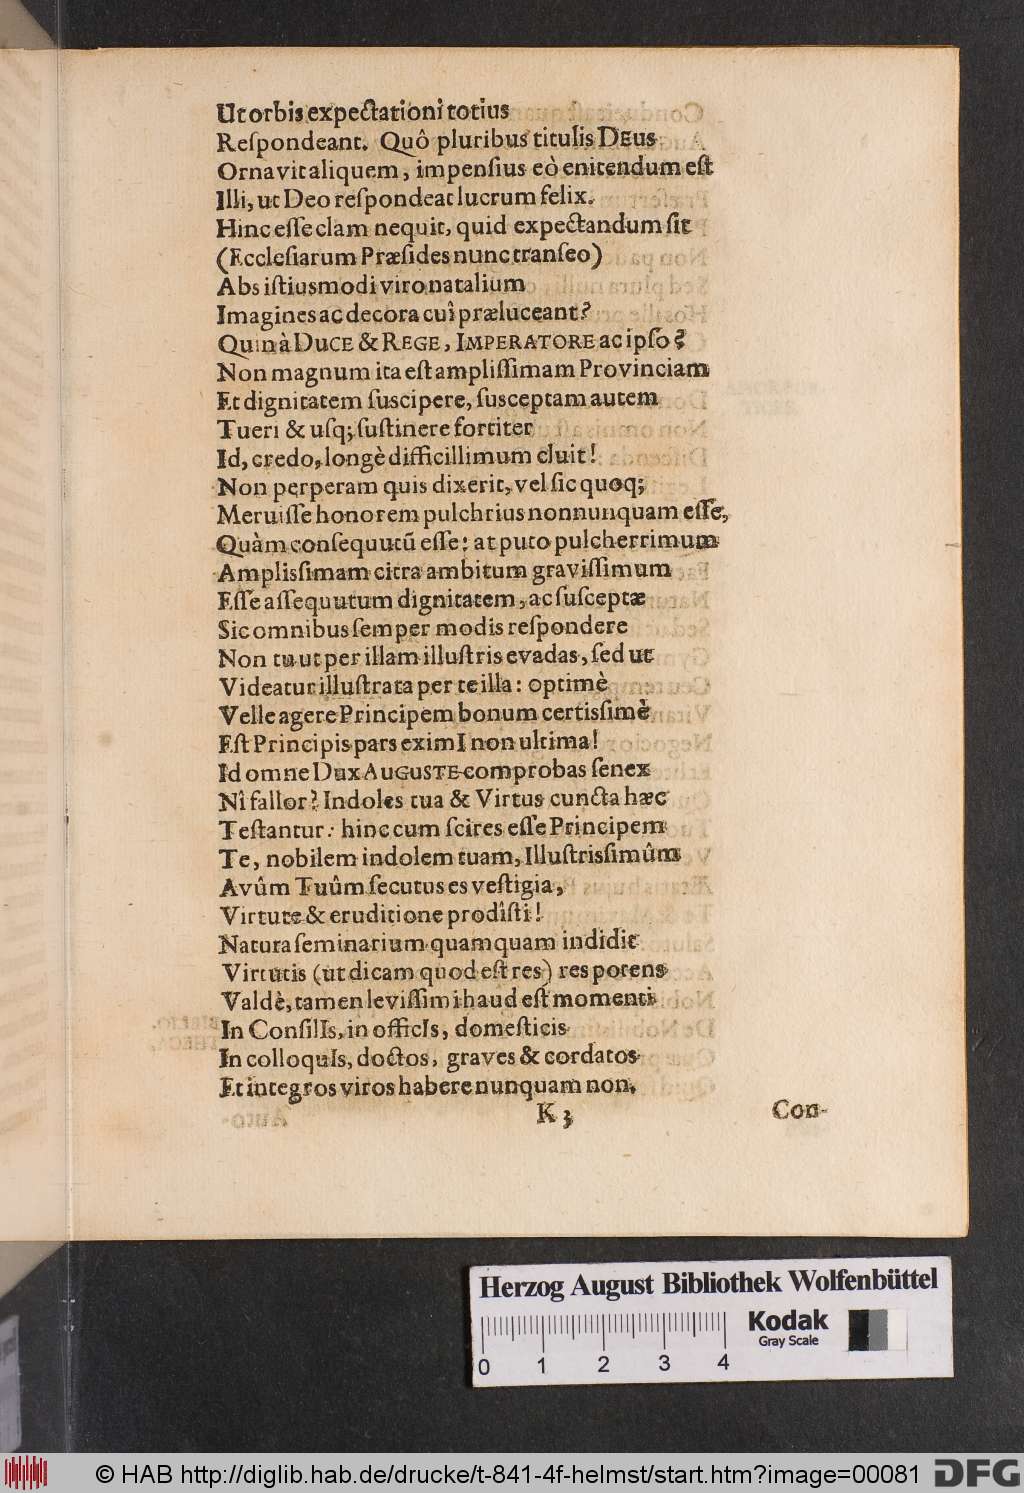 Ut orbis expectationi totius
Reſpondeant. Quô pluribus titulis DEUS
Ornavit aliquem, impenſius eò enitendum eſt
Illi, ut Deo reſpondeat lucrum felix.
Hinc eſſe clam nequit, quid expectandum ſit
(Eccleſiarum Præſides nunc tranſeo)
Abs iſtiusmodi viro natalium
Imagines ac decora cuî præluceant?
Quin à DUCE & REGE, IMPERATORE ac ipſo?
Non magnum ita eſt ampliſſimam Provinciam
Et dignitatem ſuscipere, ſusceptam autem
Tueri & uſq; ſuſtinere fortiter
Id, credo, longè difficillimum cluit!
Non perperam quis dixerit, vel ſic quoq;
Meruiſſe honorem pulchrius nonnunquam eſſe,
Quàm conſequutũ eſſe: at puto pulcherrimum
Amplisſimam citra ambitum graviſſimum
Eſſe aſſequutum dignitatem, ac ſuſceptæ
Sic omnibus ſemper modis reſpondere
Non tu ut per illam illuſtris evadas, ſed ut
Videatur illuſtrata per te illa: optimè
Velle agere Principem bonum certisſimè
Eſt Principis pars eximI non ultima!
Id omne Dux AUGUSTE comprobas ſenex
Nî fallor? Indoles tua & Virtus cuncta hæc
Teſtantur: hinc cum ſcires eſſe Principem
Te, nobilem indolem tuam, Illuſtrisſimûm
Avûm Tuûm ſecutus es veſtigia,
Virtute & eruditione prodîſti!
Natura ſeminarium quamquam indidit
Virtutis (ut dicam quod eſt res) res potens
Valdè, tamen leviſſimi haud eſt momenti
In ConſilIs, in officIs, domeſticis
In colloquIs, doctos, graves & cordatos
Et integros viros habere nunquam non.
K 3 Con-
Herzog August Bibliothek Wolfenbüttel
Kodak
Gray Scale
0 1 2 3 4
© HAB http://diglib.hab.de/drucke/t-841-4f-helmst/start.htm?image=00081
DFG